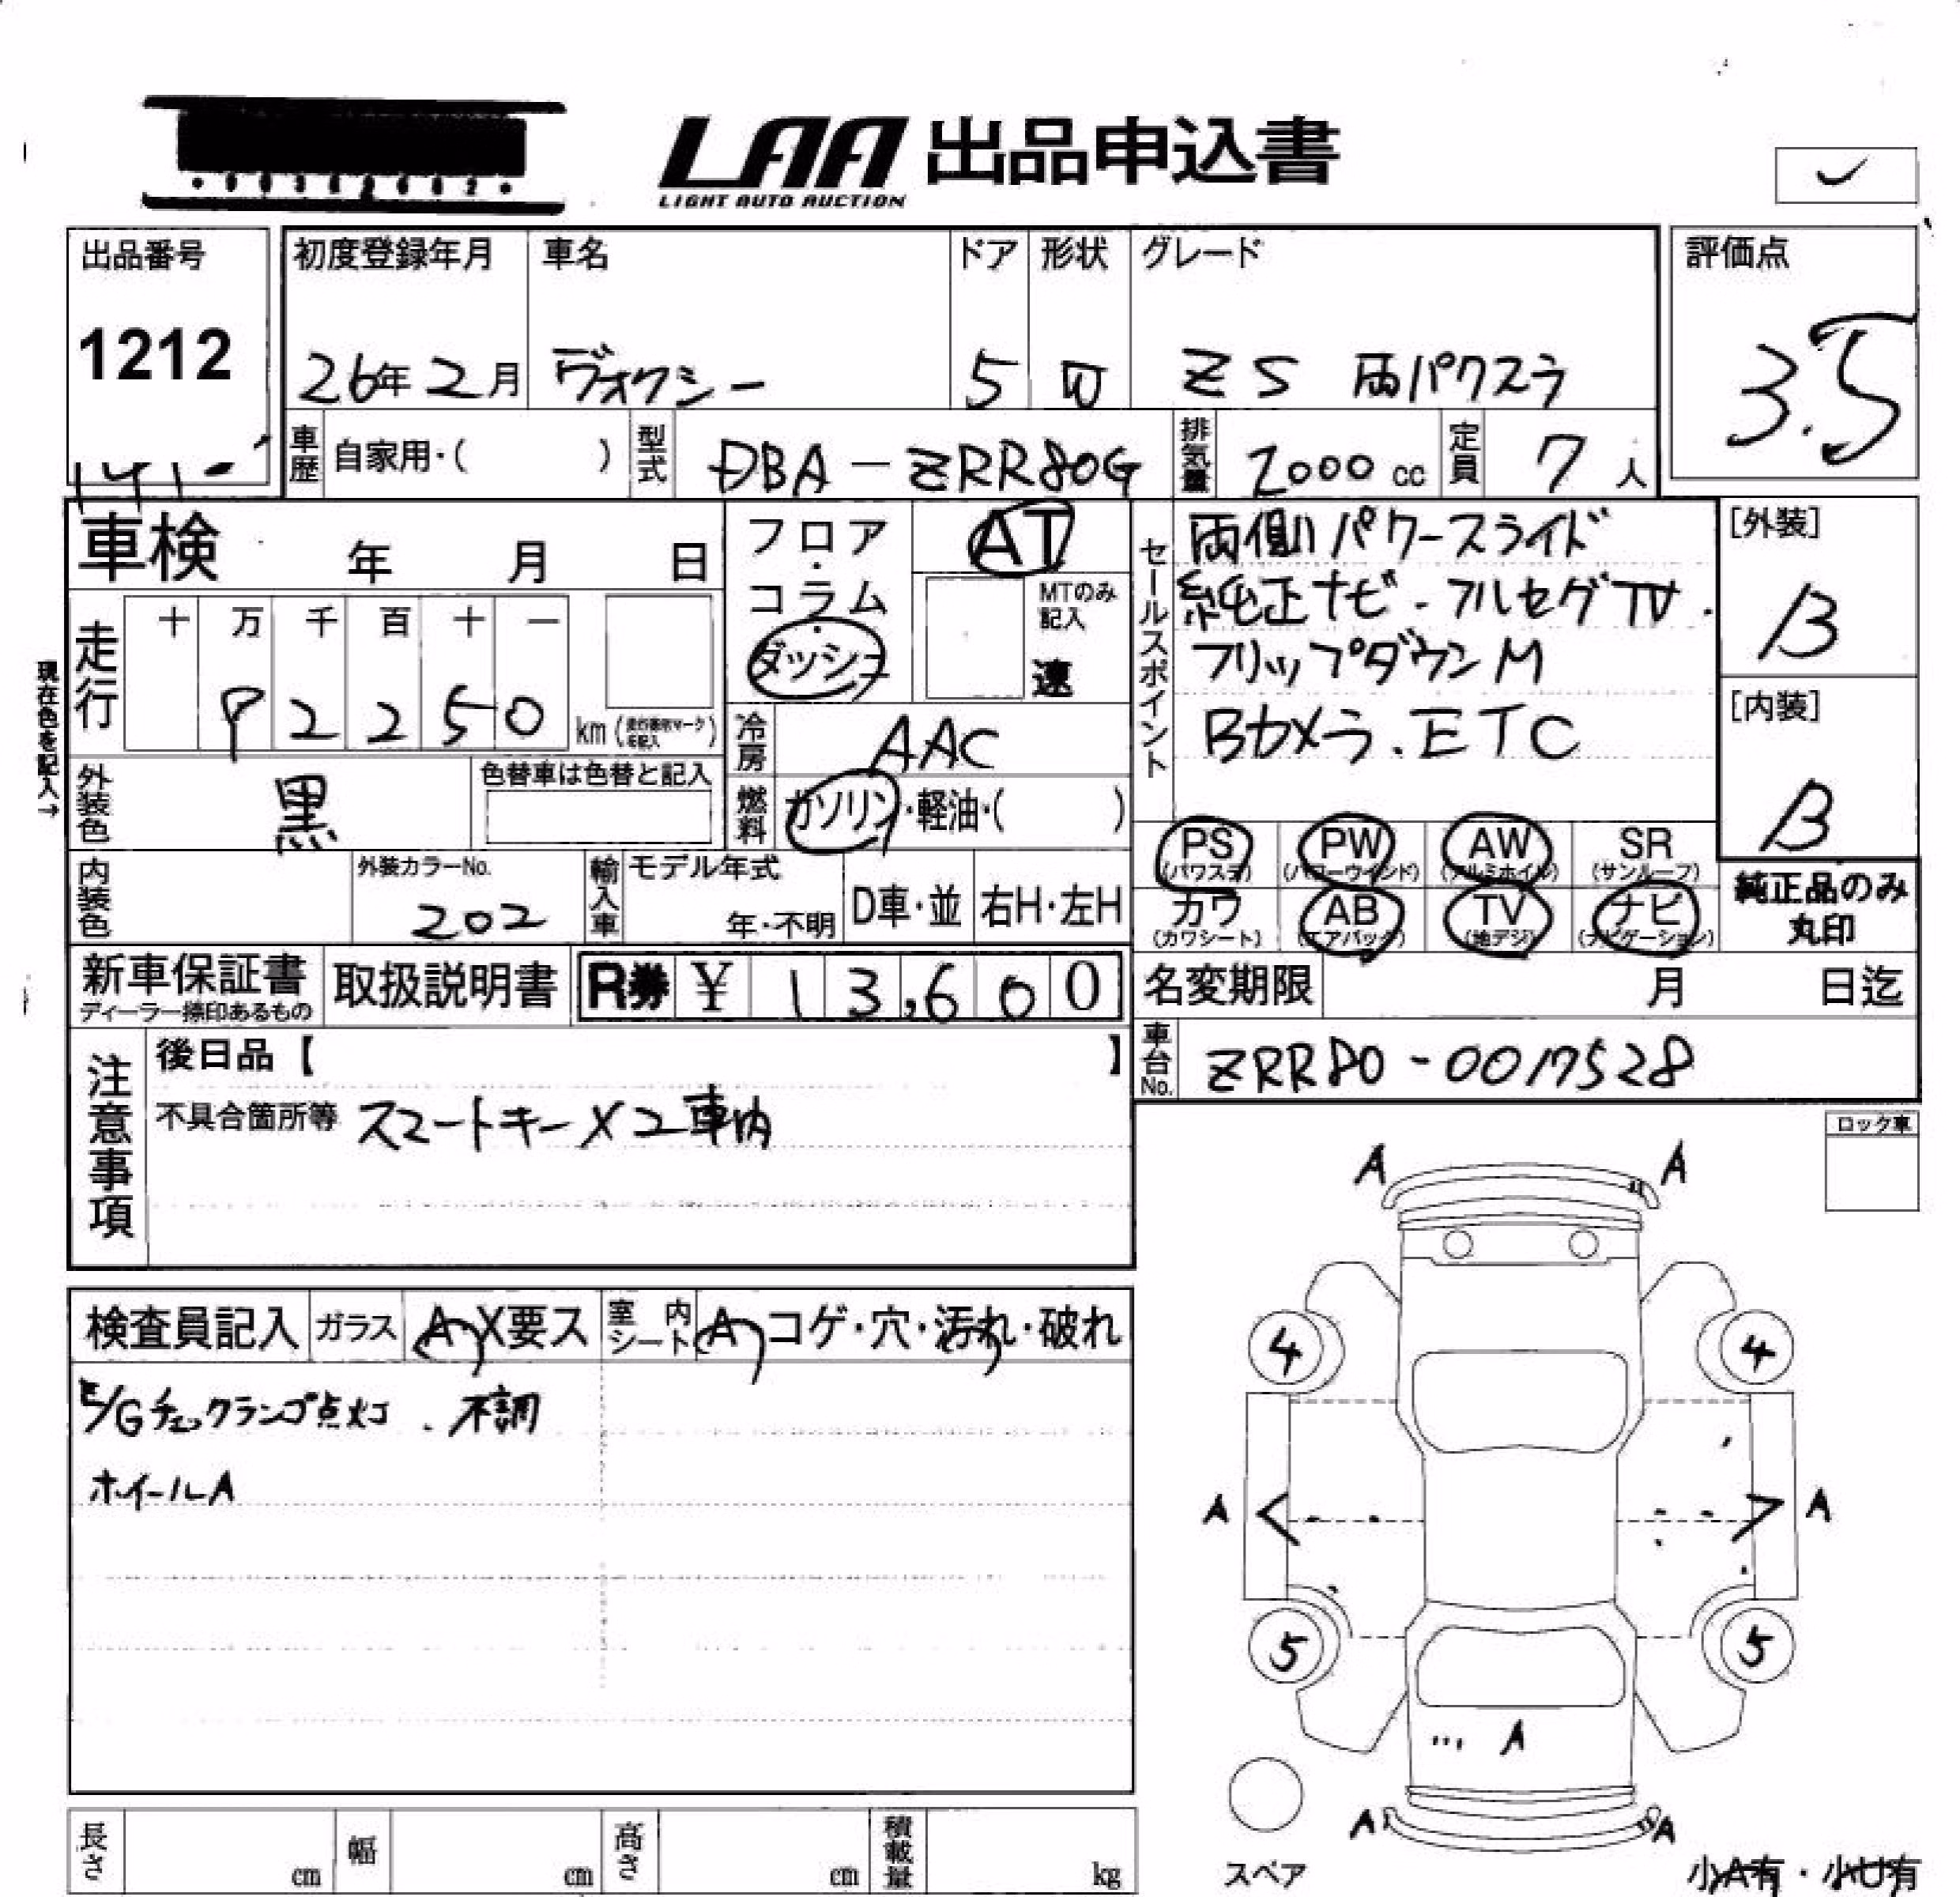 LAA 出品申込書
LIGHT AUTO AUCTION
出品番号 初度登録年月 車名 ドア 形状 グレード 評価点
1212 26年2月 ヴォクシー 5 ZS 両パワスラ 3.5
車歴 自家用・( ) 型式 DBA-ZRR80G 排気量 2000cc 定員 7人
車検 年 月 日
フロア・コラム・ダッシュ
AT
MTのみ記入
速
セールスポイント
両側パワースライド
純正ナビ.フルセグTV.
フリップダウンM
Bカメラ.ETC
[外装]
B
[内装]
B
現在色を記入→
走行 十 万 千 百 十 一
92250 km
冷房 AAC
外装色 黒 色替車は色替と記入
燃料 ガソリン・軽油・( )
PS PW AW SR
(パワステ) (パワーウインド) (アルミホイル) (サンルーフ)
カワ AB TV ナビ
(カワシート) (エアバック) (地デジ) (ナビゲーション)
純正品のみ
丸印
内装色 外装カラーNo. 202 輸入車 モデル年式 年・不明 D車・並 右H・左H
新車保証書 取扱説明書 R券 ¥ 13,600
ディーラー捺印あるもの
名変期限 月 日迄
車台No. ZRR80-0017528
注意事項
後日品【 】
不具合箇所等 スマートキー×2車内
ロック車
検査員記入 ガラス A・X要ス 室内シート A・コゲ・穴・汚れ・破れ
E/Gチェックランプ点灯.不調
ホイールA
A A
4 4
A A
5 5
A
A A
スペア
小A有・小U有
長さ cm 幅 cm 高さ cm 積載量 kg